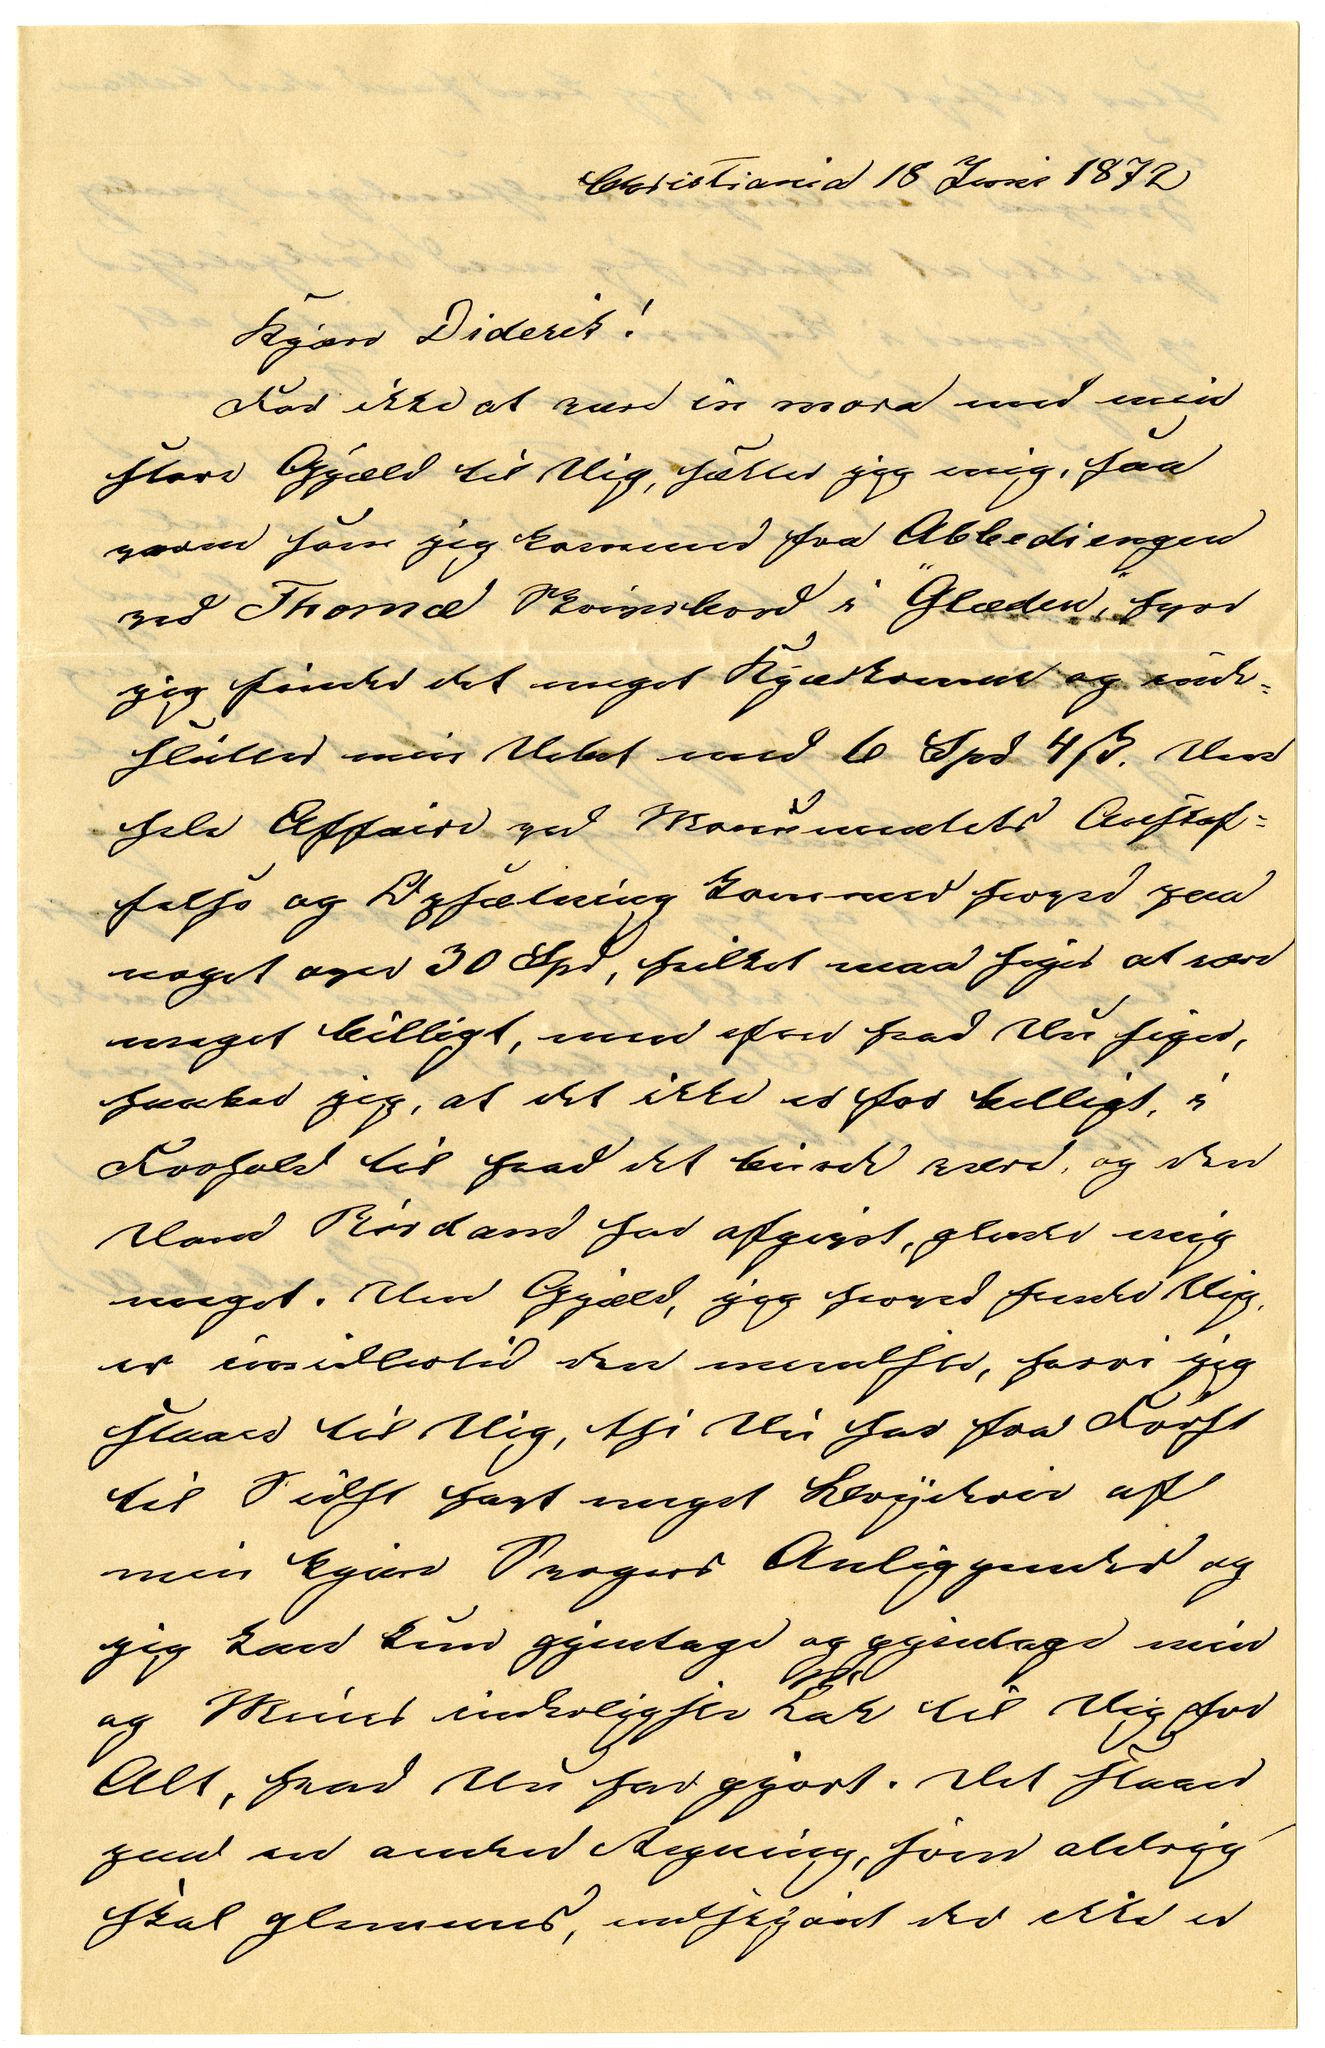 Christiania 18 Juni 1872
Kjære Diderik!
For ikke at være in mora med min
store Gjæld til Dig, sætter jeg mig, saa
varm som jeg kommer fra Abbediengen
ved Thomæ Skrivebord i "Glæden", hvor
jeg finder det meget Kjærkomne og inde=
slutter min Debet med 6 Spd 4 ß. Den
hele Affaire ved Monumentets Anskaf=
felse og Opsætning kommer herved paa
noget over 30 Spd, hvilket maa siges at være
meget billigt, men efter hvad Du siger,
haaber jeg, at det ikke er for billigt, i
Forhold til hvad det burde være, og den
Dom Rördam har afgivet, glæder mig
meget. Den Gjæld, jeg herved sender Dig,
er imidlertid den mindste, hvori jeg
staaer til Dig, thi Du har fra Först
til Sidst havt meget Bryderi af
min kjære Svogers Anliggender og
jeg kan kun gjentage og gjentage min
og Mines inderligste Tak til Dig for
Alt, hvad Du har gjort. Det staaer
paa en anden Regning, som aldrig
skal glemmes, endskjönt der ikke er